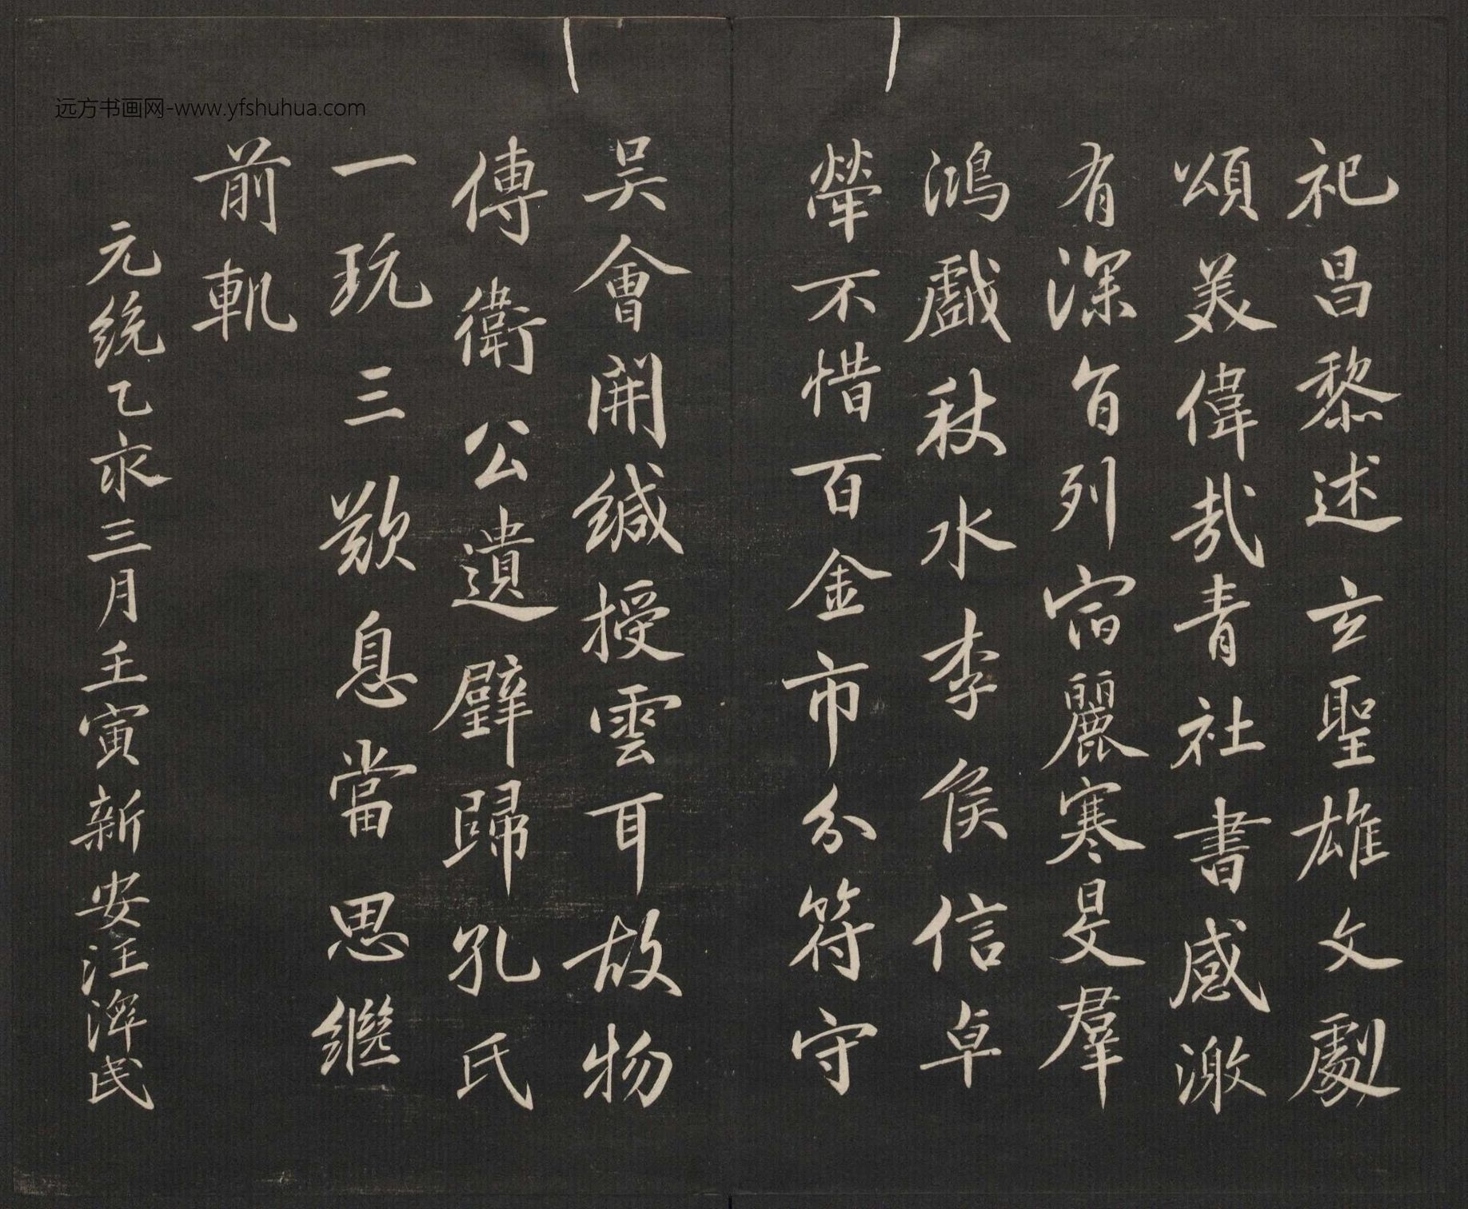 远方书画网-www.yfshuhua.com
祀昌黎述玄聖雄文劇
頌美偉哉青社書感激
有深旨列宿麗寒旻群
鴻戲秋水李侯信卓
犖不惜百金市分符守
吳會開緘授雲耳故物
傳衛公遺璧歸孔氏
一玩三歎息當思繼
前軌
元統乙亥三月壬寅新安汪澤民